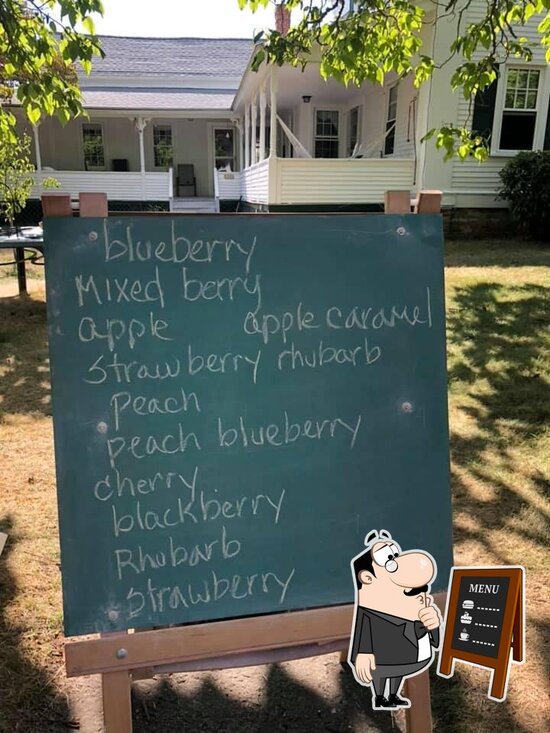 blueberry
Mixed berry
apple apple caramel
strawberry rhubarb
Peach
peach blueberry
cherry
blackberry
Rhubarb
strawberry
MENU